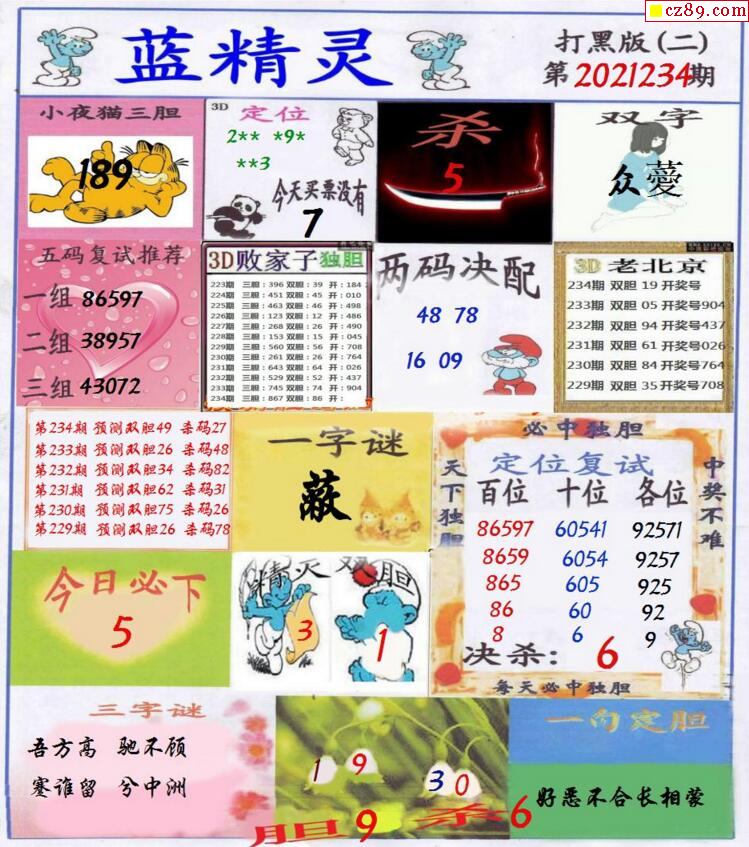 cz89.com
蓝精灵
打黑版(二)
第2021234期
小夜猫三胆
189
3D 定位
2** *9*
**3
今天买票没有
7
杀
5
双字
众薆
五码复试推荐
一组 86597
二组 38957
三组 43072
3D败家子独胆
223期 三胆:396 双胆:39 开:184
224期 三胆:451 双胆:45 开:010
225期 三胆:463 双胆:46 开:498
226期 三胆:123 双胆:12 开:486
227期 三胆:268 双胆:26 开:490
228期 三胆:153 双胆:15 开:045
229期 三胆:560 双胆:56 开:708
230期 三胆:261 双胆:26 开:764
231期 三胆:643 双胆:64 开:026
232期 三胆:529 双胆:52 开:437
233期 三胆:745 双胆:74 开:904
234期 三胆:867 双胆:86 开:
两码决配
48 78
16 09
3D 老北京
234期 双胆 19 开奖号
233期 双胆 05 开奖号904
232期 双胆 94 开奖号437
231期 双胆 61 开奖号026
230期 双胆 84 开奖号764
229期 双胆 35 开奖号708
第234期 预测双胆49 杀码27
第233期 预测双胆26 杀码48
第232期 预测双胆34 杀码82
第231期 预测双胆62 杀码31
第230期 预测双胆75 杀码26
第229期 预测双胆26 杀码78
一字谜
蔽
必中独胆
天下独胆
中奖不难
定位复试
百位 十位 各位
86597 60541 92571
8659 6054 9257
865 605 925
86 60 92
8 6 9
决杀: 6
每天必中独胆
今日必下
5
精灵双胆
3
1
三字谜
吾方高 驰不顾
蹇谁留 兮中洲
1 9
3 0
胆9 杀6
一句定胆
好恶不合长相蒙